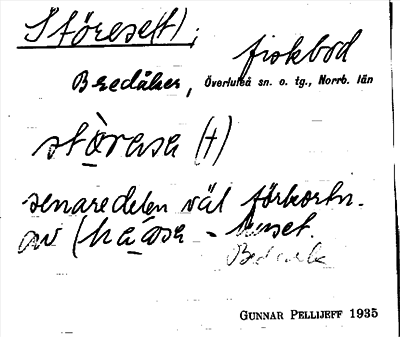 Störese(t);
fiskbod
Bredåker, Överluleå sn. o. tg., Norrb. län
stòrase (t)
senaredelen väl förkortn.
av (hàase - huset.
GUNNAR PELLIJEFF 1935